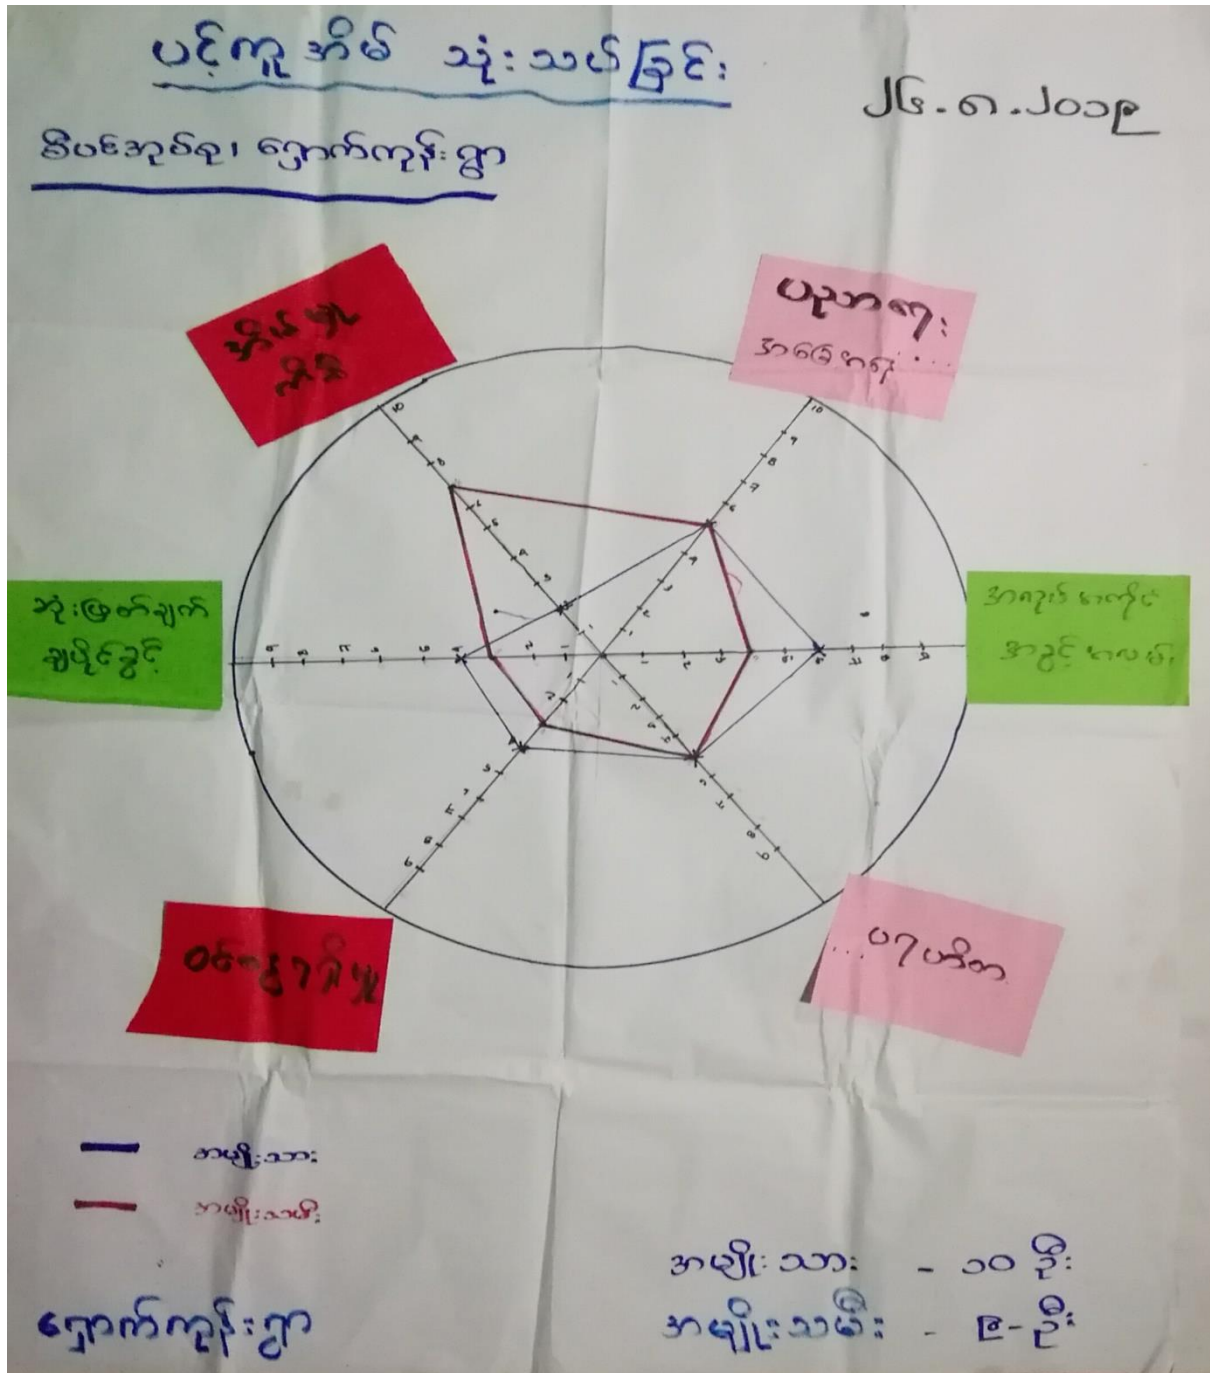 ပင့်ကူအိမ် သုံးသပ်ခြင်း
၂၆.၈.၂၀၁၉
စီပင်အုပ်စု၊ ရှောက်ကုန်းရွာ
အိမ်မှု
ကိစ္စ
ပညာရေး
အခြေအနေ
ဆုံးဖြတ်ချက်
ချပိုင်ခွင့်
အလုပ်အကိုင်
အခွင့်အလမ်း
ဝင်ငွေရရှိမှု
ပရဟိတ
အမျိုးသား
အမျိုးသမီး
အမျိုးသား - ၁၀ ဦး
အမျိုးသမီး - ၉-ဦး
ရှောက်ကုန်းရွာ